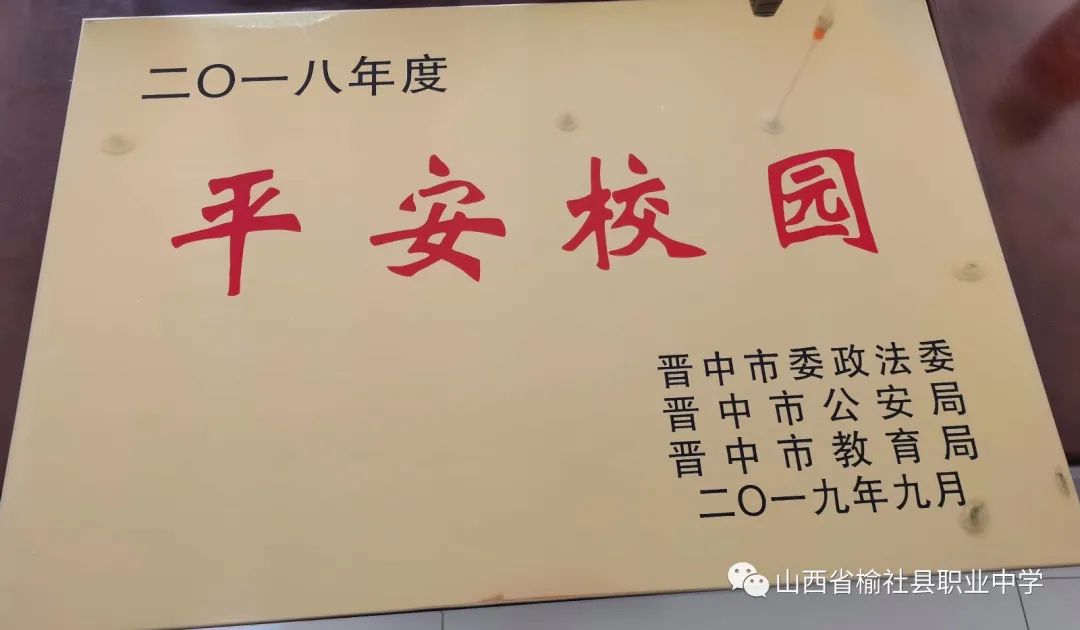 二〇一八年度
平安校园
晋中市委政法委
晋中市公安局
晋中市教育局
二〇一九年九月
山西省榆社县职业中学